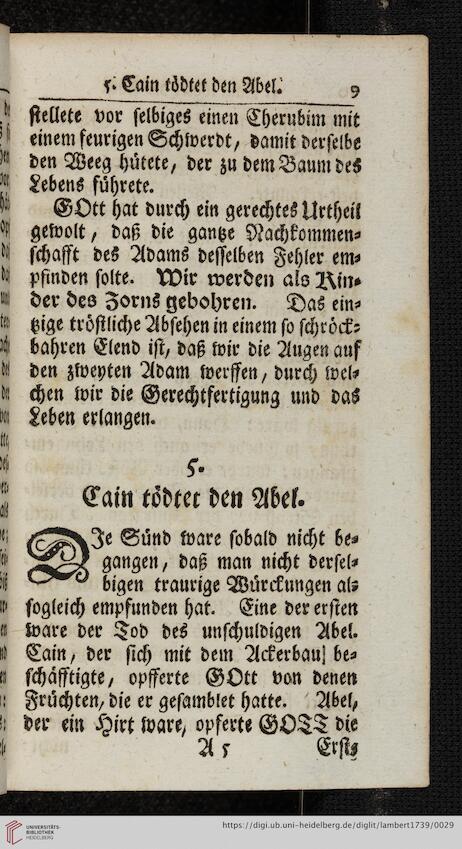 5. Cain tödtet den Abel. 9
stellete vor selbiges einen Cherubim mit
einem feurigen Schwerdt, damit derselbe
den Weeg hütete, der zu dem Baum des
Lebens führete.
GOtt hat durch ein gerechtes Urtheil
gewolt, daß die gantze Nachkommen-
schafft des Adams desselben Fehler em-
pfinden solte. Wir werden als Kin-
der des Zorns gebohren. Das ein-
tzige tröstliche Absehen in einem so schröck-
bahren Elend ist, daß wir die Augen auf
den zweyten Adam werffen, durch wel-
chen wir die Gerechtfertigung und das
Leben erlangen.
5.
Cain tödtet den Abel.
DIe Sünd ware sobald nicht be-
gangen, daß man nicht dersel-
bigen traurige Würckungen al-
sogleich empfunden hat. Eine der ersten
ware der Tod des unschuldigen Abel.
Cain, der sich mit dem Ackerbau be-
schäfftigte, opfferte GOtt von denen
Früchten, die er gesamblet hatte. Abel,
der ein Hirt ware, opferte GOTT die
A 5 Erst-
UNIVERSITÄTS-
BIBLIOTHEK
HEIDELBERG
https://digi.ub.uni-heidelberg.de/diglit/lambert1739/0029